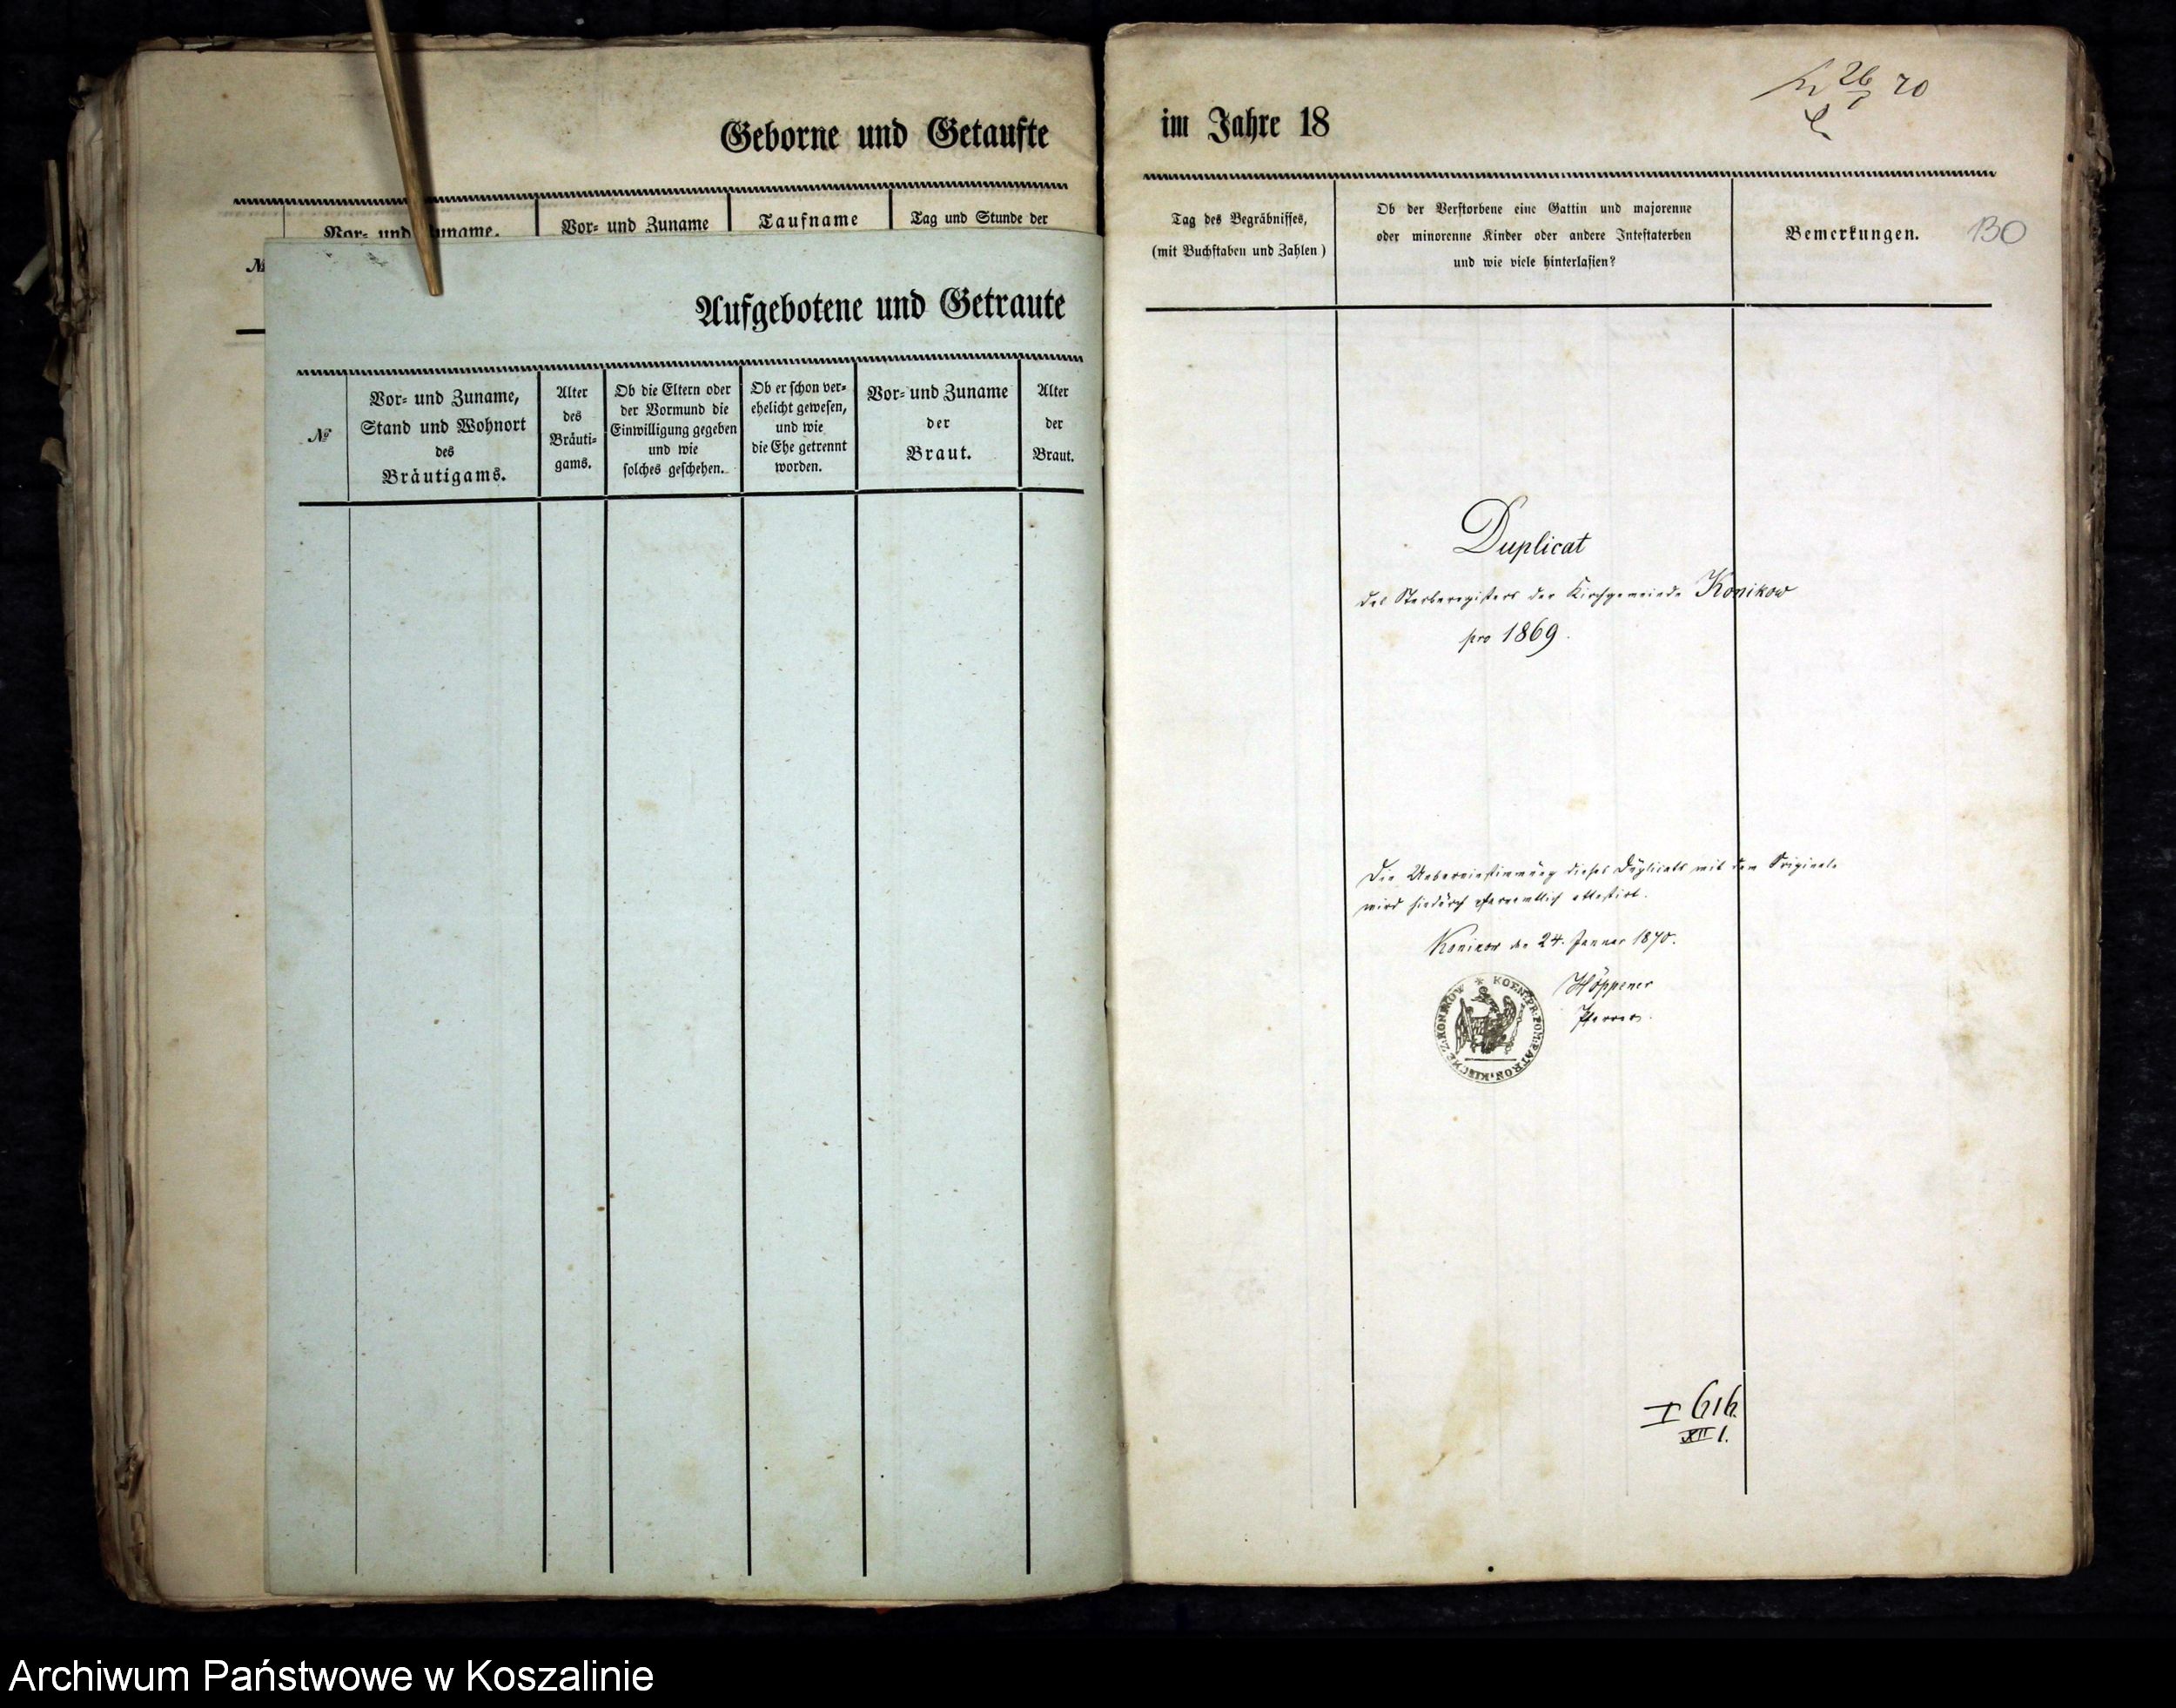 Geborne und Getaufte
Vor- und Zuname.
Vor- und Zuname
Taufname
Tag und Stunde der
Aufgebotene und Getraute
№
Vor- und Zuname,
Stand und Wohnort
des
Bräutigams.
Alter
des
Bräuti-
gams.
Ob die Eltern oder
der Vormund die
Einwilligung gegeben
und wie
solches geschehen.
Ob er schon ver-
ehelicht gewesen,
und wie
die Ehe getrennt
worden.
Vor- und Zuname
der
Braut.
Alter
der
Braut.
im Jahre 18
26 70
Tag des Begräbnisses,
(mit Buchstaben und Zahlen)
Ob der Verstorbene eine Gattin und majorenne
oder minorenne Kinder oder andere Intestaterben
und wie viele hinterlassen?
Bemerkungen.
130
Duplicat
des Sterberegisters der Kirchgemeinde Konikow
pro 1869.
Die Uebereinstimmung dieses Duplicats mit dem Originale
wird hiedurch pfarramtlich attestirt.
Konikow den 24. Januar 1870.
Höppener
Pfarrer.
KOEN. PR. POM. PATRON. KIRCHE Z. KONIKOW
I 616.
XII 1.
Archiwum Państwowe w Koszalinie